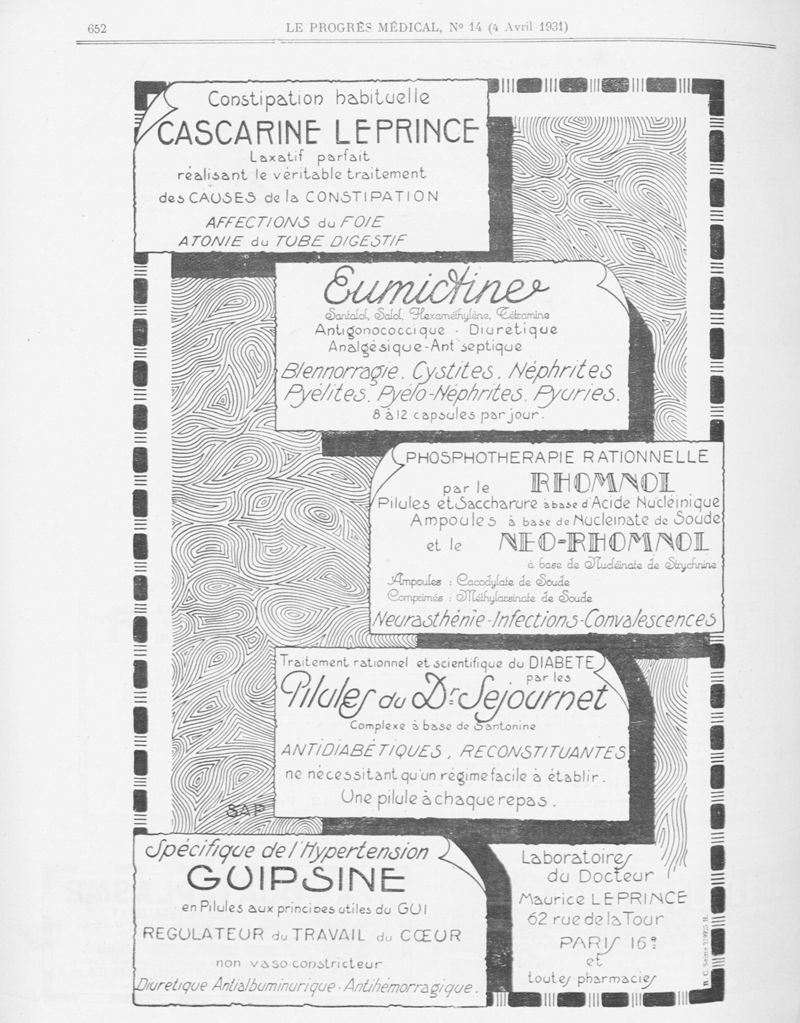 652
LE PROGRÈS MÉDICAL, No 14 (4 Avril 1931)
Constipation habituelle
CASCARINE LEPRINCE
Laxatif parfait
réalisant le véritable traitement
des CAUSES de la CONSTIPATION
AFFECTIONS du FOIE
ATONIE du TUBE DIGESTIF
Eumictine
Santalol, Salol, Hexaméthylène, Tétramine
Antigonococcique - Diurétique
Analgésique - Antiseptique
Blennorragie. Cystites. Néphrites
Pyélites. Pyélo-Néphrites. Pyuries.
8 à 12 capsules par jour.
PHOSPHOTHERAPIE RATIONNELLE
par le RHOMNOL
Pilules et Saccharure à base d'Acide Nucléinique
Ampoules à base de Nucléinate de Soude
et le NEO-RHOMNOL
à base de Nucléinate de Strychnine
Ampoules : Cacodylate de Soude
Comprimés : Méthylarsinate de Soude
Neurasthénie - Infections - Convalescences
Traitement rationnel et scientifique du DIABETE
par les
Pilules du Dr Séjournet
Complexe à base de Santonine
ANTIDIABÉTIQUES, RECONSTITUANTES
ne nécessitant qu'un régime facile à établir.
Une pilule à chaque repas.
SAP
Spécifique de l'Hypertension
GUIPSINE
en Pilules aux principes utiles du GUI
REGULATEUR du TRAVAIL du CŒUR
non vaso-constricteur
Diurétique Antialbuminurique - Antihémorragique.
Laboratoires
du Docteur
Maurice LEPRINCE
62 rue de la Tour
PARIS 16e
et
toutes pharmacies